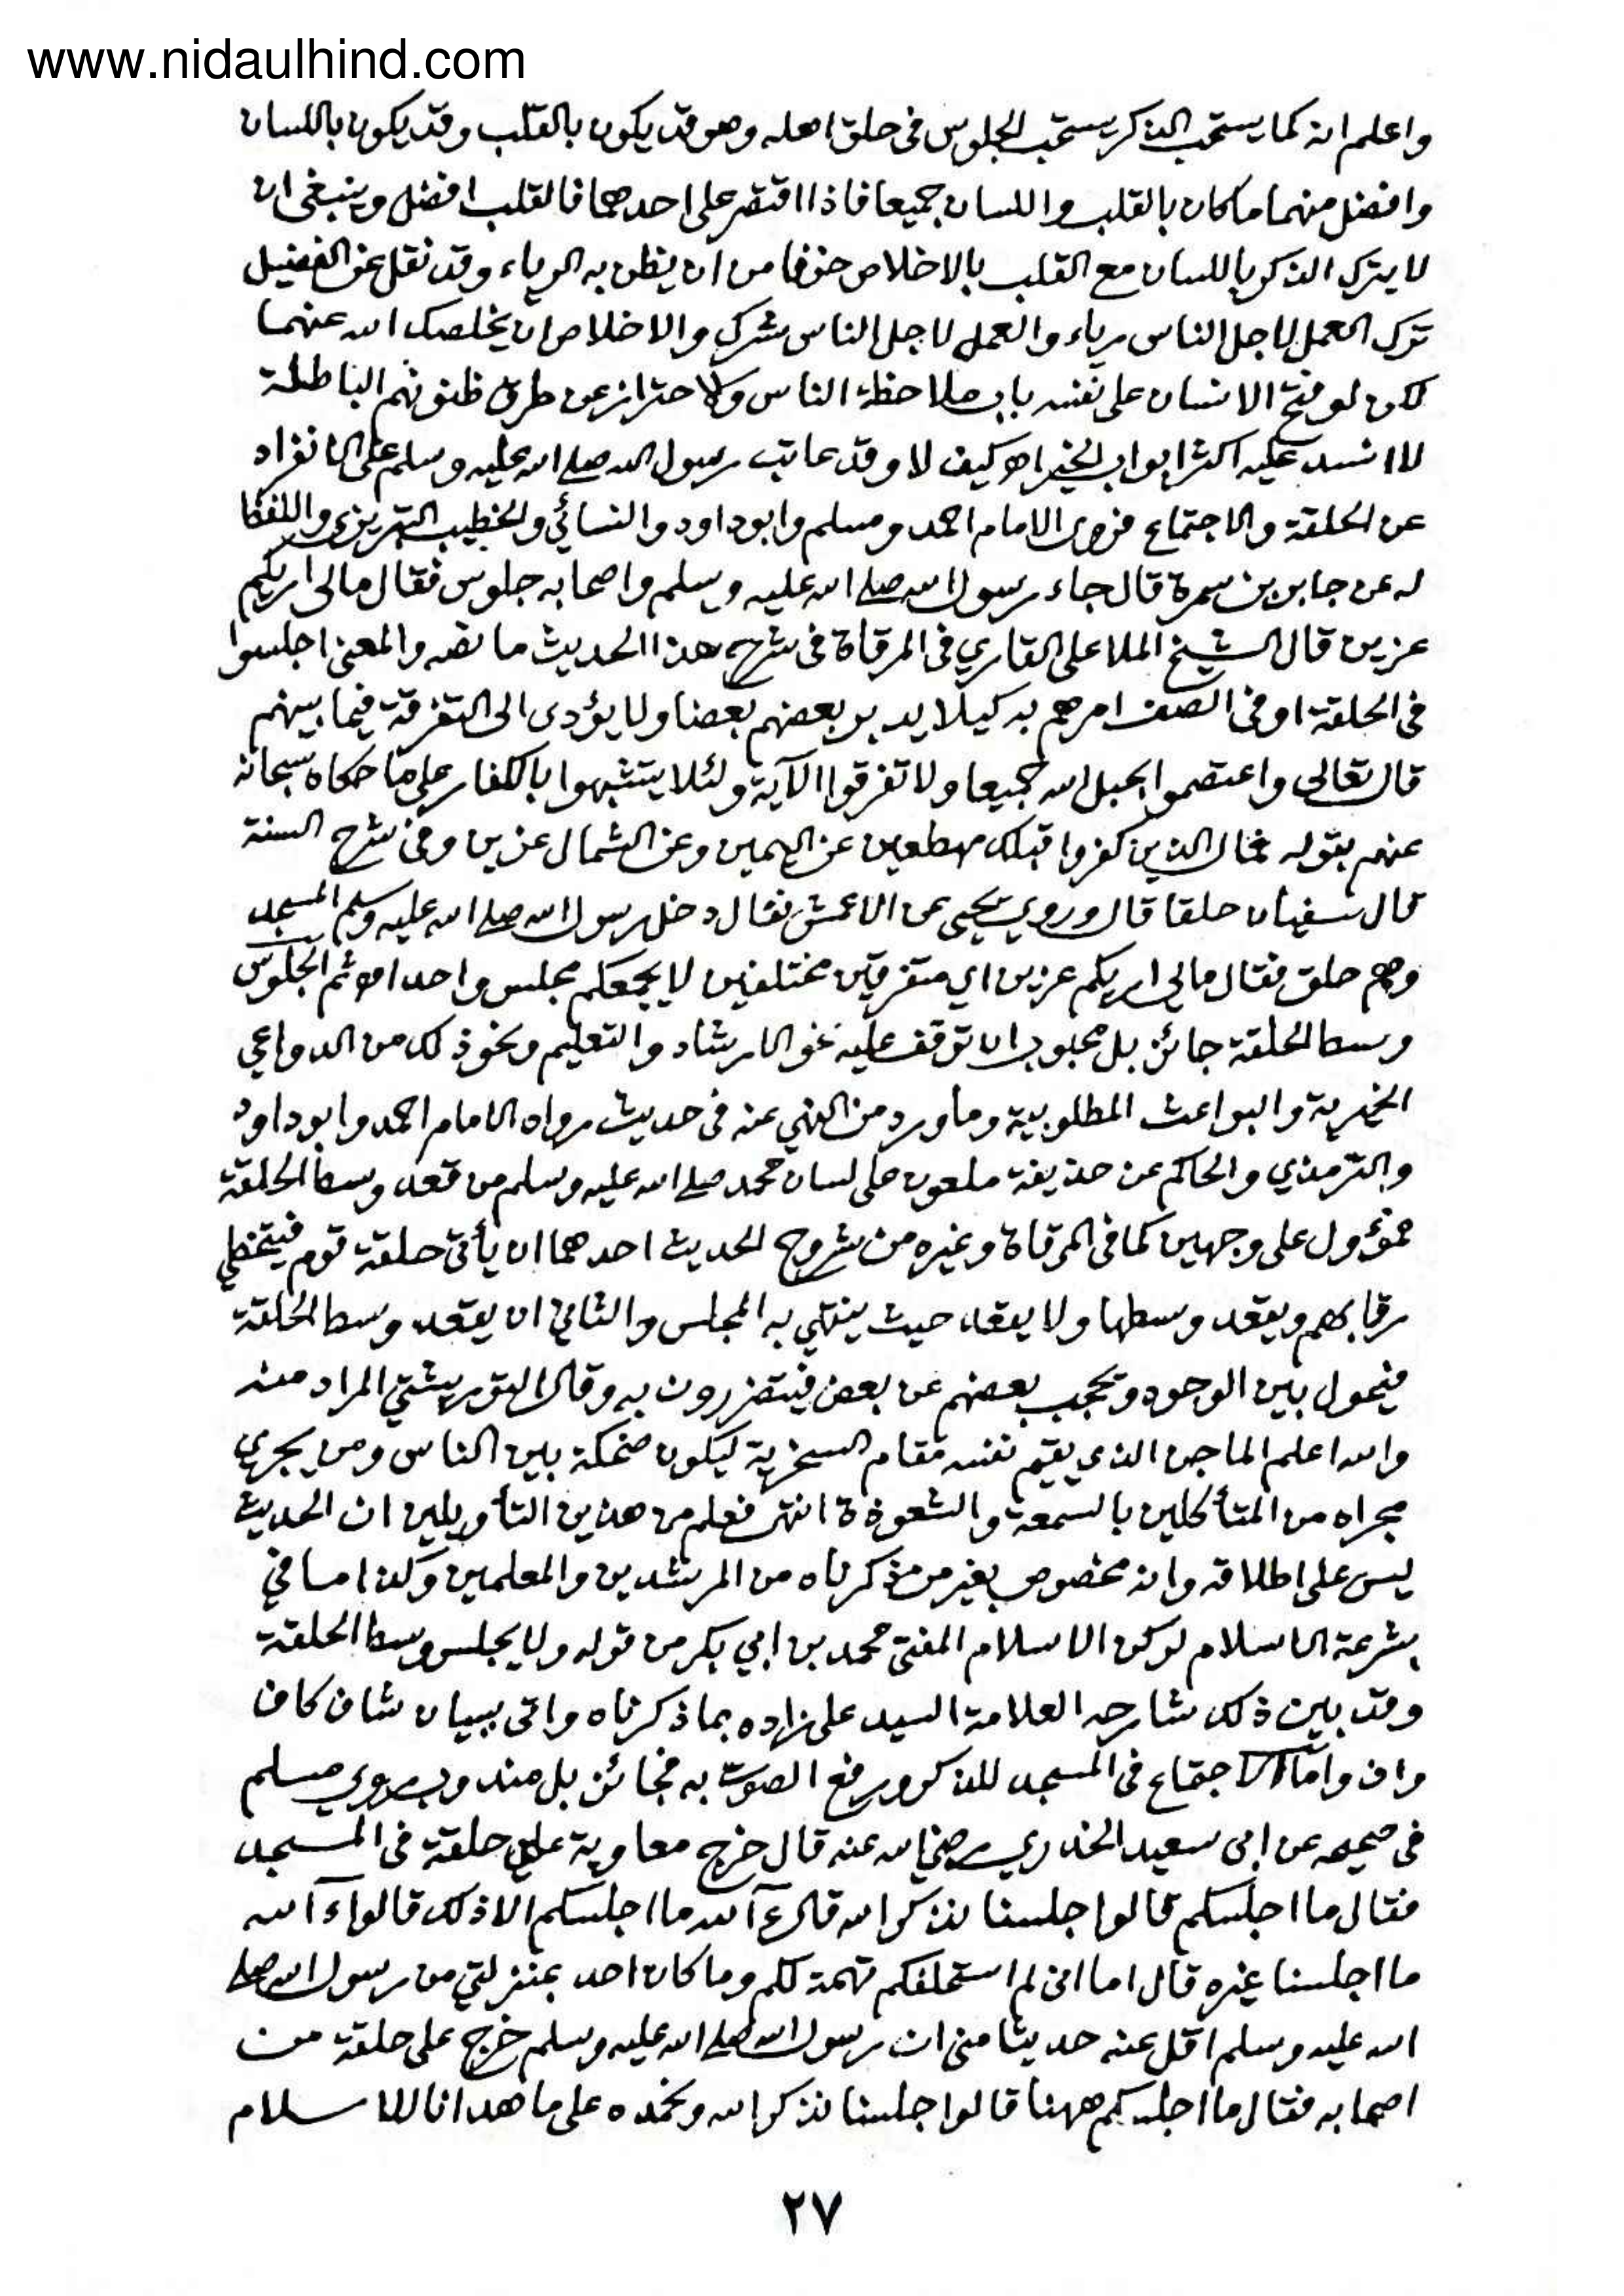 www.nidaulhind.com
واعلم انه كما يستحب الذكر يستحب الجلوس فى حلق اهله وهو قد يكون بالقلب وقد يكون باللسان
وافضل منهما ما كان بالقلب واللسان جميعا فاذا اقتصر على احدهما فالقلب افضل وينبغى ان
لا يترك الذكر باللسان مع القلب بالاخلاص خوفا من ان يظن به الرياء وقد نقل عن الفضيل
ترك العمل لاجل الناس رياء والعمل لاجل الناس شرك والاخلاص ان يخلصك الله عنهما
لكن لو فتح الانسان على نفسه باب ملاحظة الناس والاحتراز عن طرق ظنونهم الباطلة
لانسد عليه اكثر ابواب الخير اه كيف لا وقد عاتب رسول الله صلے الله عليه وسلم على الانفراد
عن الحلقة والاجتماع فروى الامام احمد ومسلم وابوداود والنسائي والخطيب التبريزي واللفظ
له عن جابر بن سمرة قال جاء رسول الله صلے الله عليه وسلم واصحابه جلوس فقال مالى اريكم
عزين قال الشيخ الملا على القاري فى المرقاة فى شرح هذا الحديث ما نصه والمعنى اجلسوا
فى الحلقة او فى الصف امرهم به كيلا يدبر بعضهم بعضا ولا يؤدى الى التفرقة فيما بينهم
قال تعالى واعتصموا بحبل الله جميعا ولا تفرقوا الآية ولئلا يتشبهوا بالكفار على ما حكاه سبحانه
عنهم بقوله فمال الذين كفروا قبلك مهطعين عن اليمين وعن الشمال عزين وفى شرح السنة
قال سفيان حلقا قال وروي يحيى عن الاعمش فقال دخل رسول الله صلے الله عليه وسلم المسجد
وهم حلق فقال مالى اريكم عزين اي متفرقين مختلفين لا يجمعكم مجلس واحد اه ثم الجلوس
وسط الحلقة جائز بل محبوب ان توقف عليه نحو الارشاد والتعليم ونحو ذلك من الدواعي
الخيرية والبواعث المطلوبية وما ورد من النهي عنه فى حديث رواه الامام احمد وابوداود
والترمذي والحاكم عن حذيفة ملعون على لسان محمد صلے الله عليه وسلم من قعد وسط الحلقة
مؤول على وجهين كما فى المرقاة وغيره من شروح الحديث احدهما ان يأتى حلقة قوم فيتخطي
رقابهم ويقعد وسطها ولا يقعد حيث ينتهي به المجلس والثاني ان يقعد وسط الحلقة
فيحول بين الوجوه ويحجب بعضهم عن بعض فيتضررون به وقال التوربشتي المراد منه
والله اعلم الماجن الذي يقيم نفسه مقام السخرية ليكون ضحكة بين الناس ومن يجري
مجراه من المتأكلين بالسمعة والشعوذة انتهى فعلم من هذين التأويلين ان الحديث
ليس على اطلاقه وانه مخصوص بغير من ذكرناه من المرشدين والمعلمين وكذا ما في
شرعة الاسلام لركن الاسلام المفتى محمد بن ابي بكر من قوله ولا يجلس وسط الحلقة
وقد بين ذلك شارحه العلامة السيد على زاده بما ذكرناه واتى ببيان شاف كاف
واف واما الاجتماع فى المسجد للذكر ورفع الصوت به فجائز بل مندوب روي مسلم
فى صحيحه عن ابى سعيد الخدري رضي الله عنه قال خرج معاوية على حلقة فى المسجد
فقال ما اجلسكم قالوا جلسنا نذكر الله قال ءآلله ما اجلسكم الا ذلك قالوا ءآلله
ما اجلسنا غيره قال اما انى لم استحلفكم تهمة لكم وما كان احد بمنزلتي من رسول الله صلے
الله عليه وسلم اقل عنه حديثا منى ان رسول الله صلے الله عليه وسلم خرج على حلقة من
اصحابه فقال ما اجلسكم ههنا قالوا جلسنا نذكر الله ونحمده على ما هدانا للاسلام
٢٧